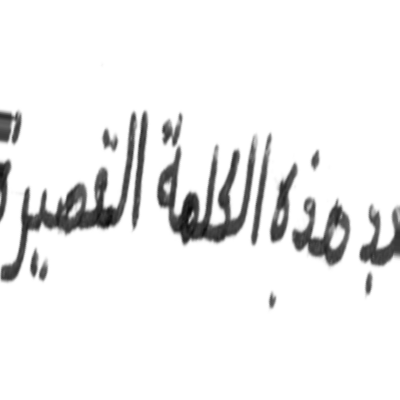 هذه الكلمة القصيرة